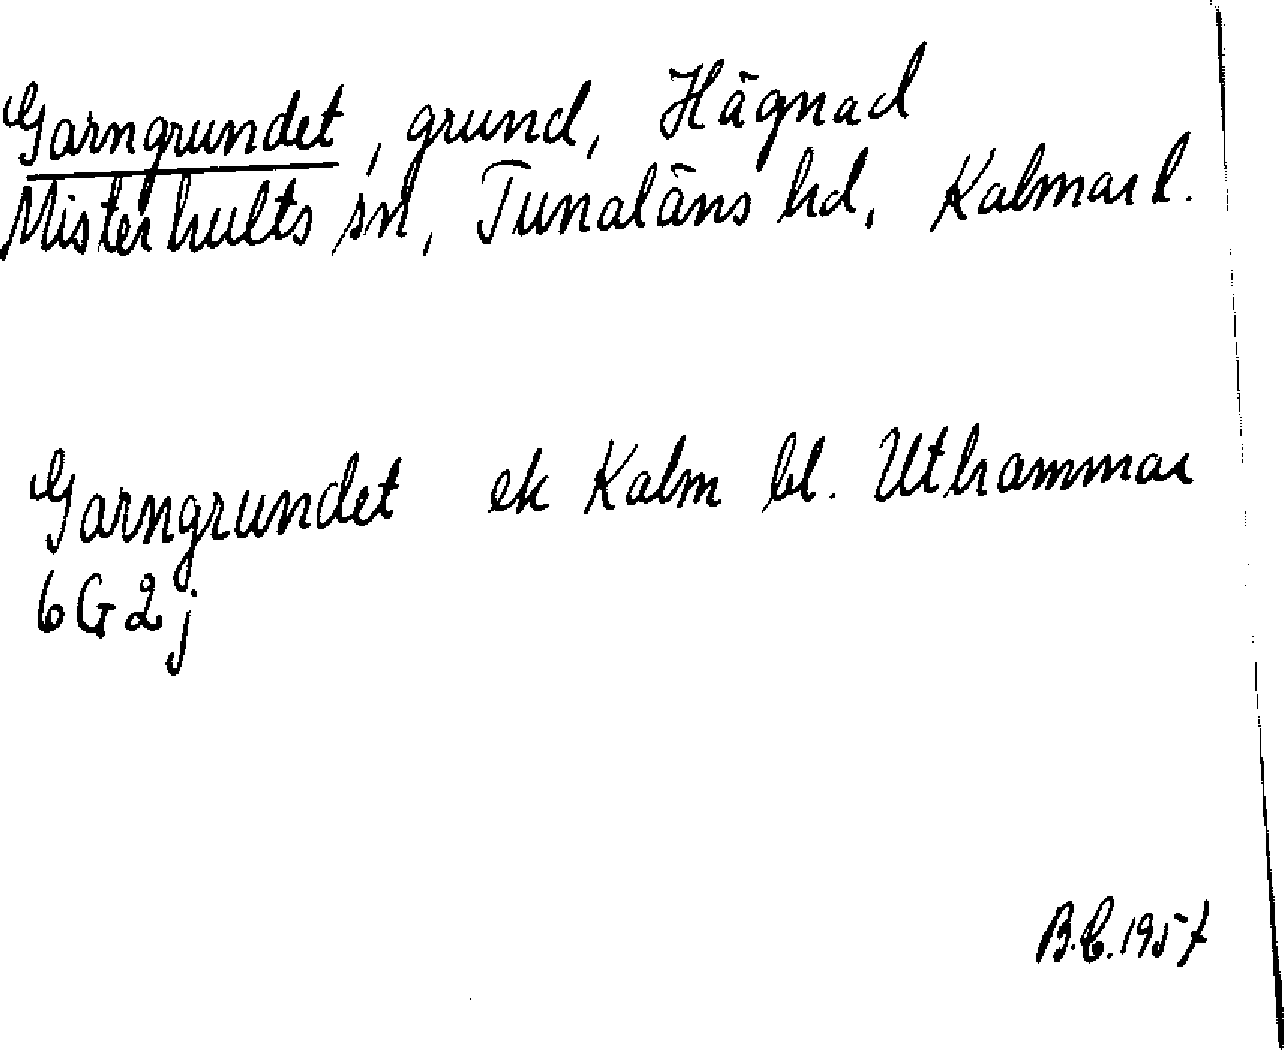 Garngrundet, grund, Hägnad
Misterhults sn, Tunaläns hd, Kalmar l.
Garngrundet ek Kalm bl. Uthammar
6G2j
B.C. 1957